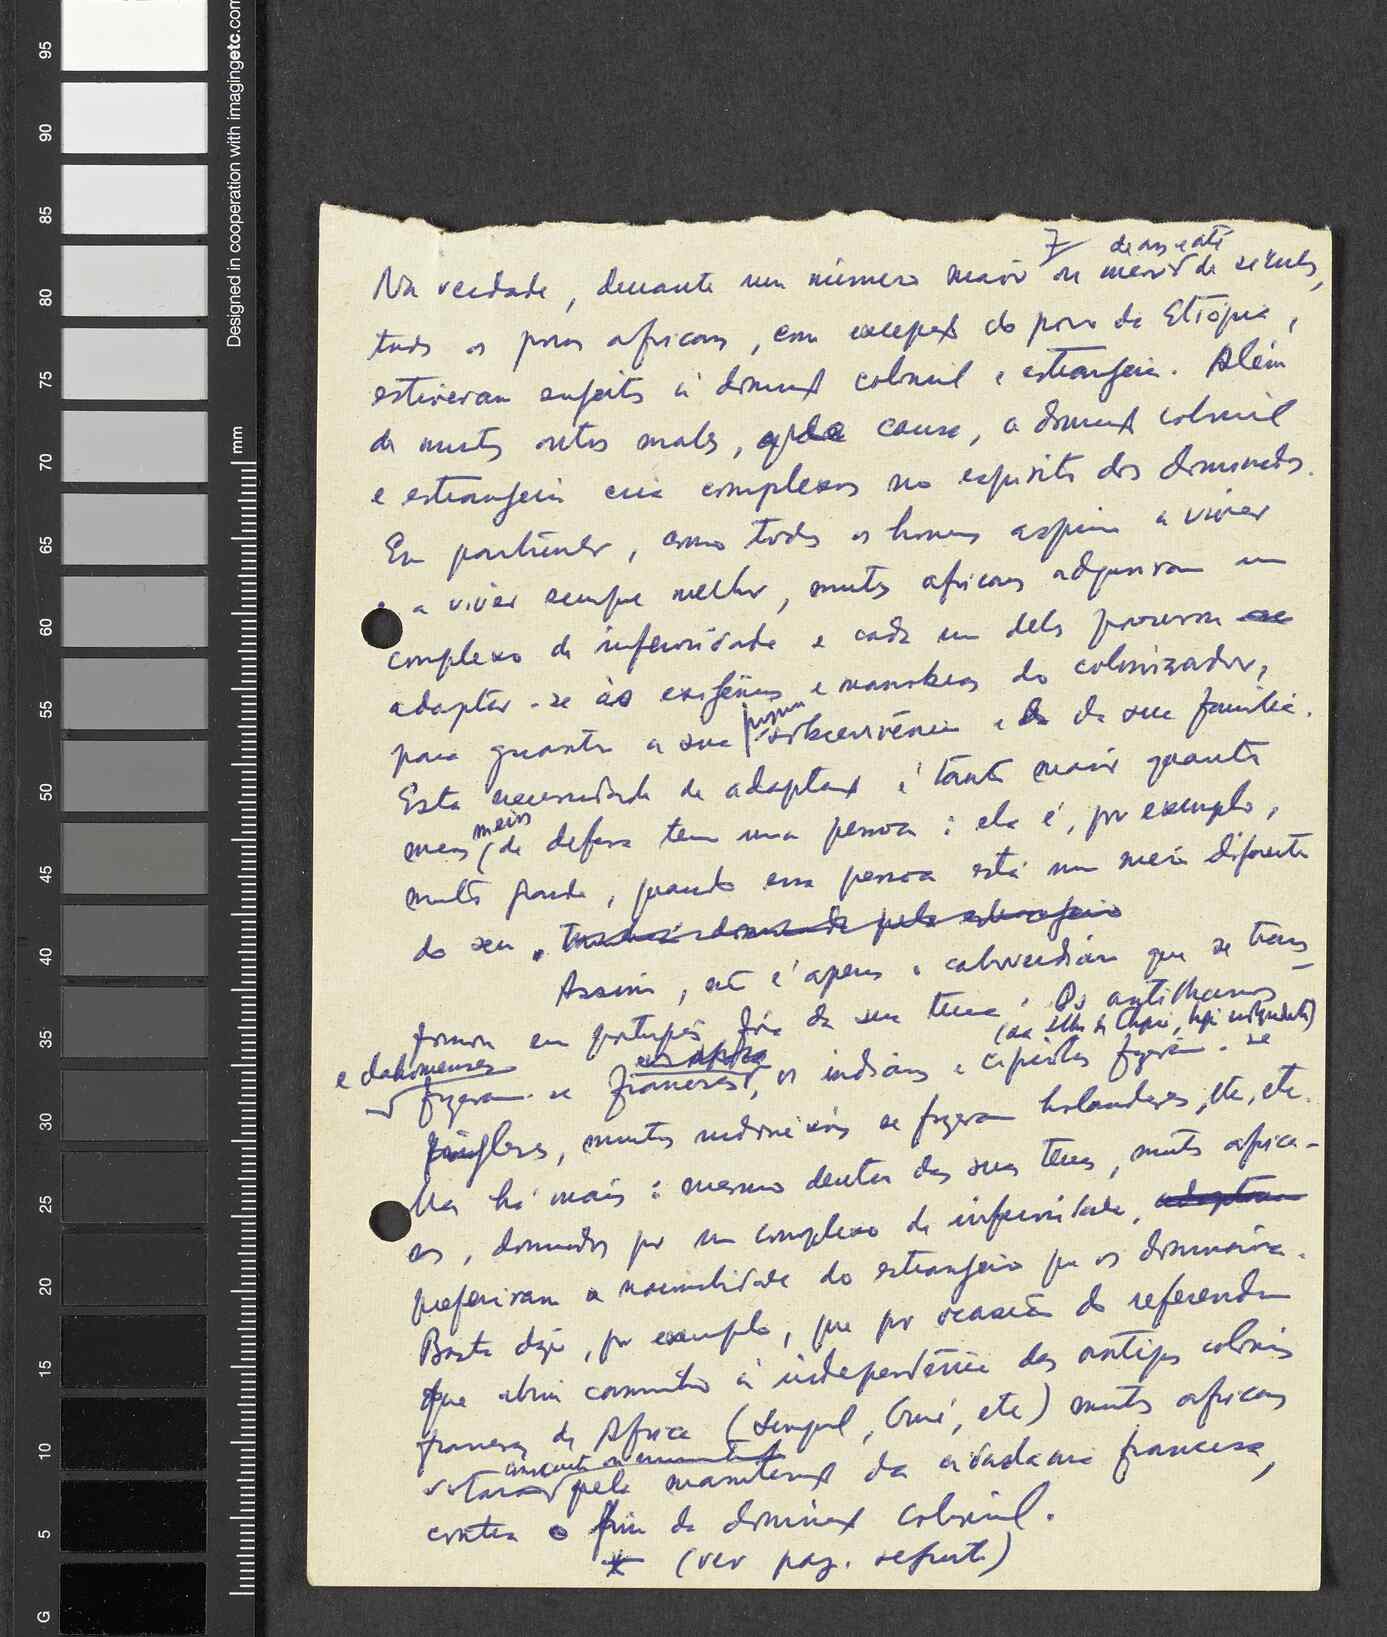 95
90
85
80
75
70
65
60
55
50
45
40
35
30
25
20
15
10
5
G
Designed in cooperation with imagingetc.com
mm
7 de anos e até
Na verdade, durante um número maior ou menor de séculos,
todos os povos africanos, com excepção do povo da Etiópia,
estiveram sujeitos à dominação colonial e estrangeira. Além
de muitos outros males, que causa, a dominação colonial
e estrangeira cria complexos no espírito dos dominados.
Em particular, como todos os homens aspiram a viver
e a viver sempre melhor, muitos africanos adquiriram um
complexo de inferioridade e cada um deles procurou
adaptar-se às exigências e manobras do colonizador,
para garantir a sua própria sobrevivência e da sua família.
Esta necessidade de adaptação é tanto maior quanto
menos meios de defesa tem uma pessoa: ela é, por exemplo,
muito grande, quando essa pessoa está num meio diferente
do seu.
Assim, não é apenas o caboverdiano que se trans-
formou em português fora da sua terra. Os antilhanos
(da Ilha de Chipre, hoje independente)
e dahomeanos
fizeram-se franceses, os indianos e cipriotas fizeram-se
ingleses, muitos indonésios se fizeram holandeses, etc, etc.
Mas há mais: mesmo dentro das suas terras, muitos africa-
nos, dominados por um complexo de inferioridade,
preferiram a nacionalidade do estrangeiro que os dominava.
Basta dizer, por exemplo, que por ocasião do referendum
que abriu caminho à independência das antigas colónias
francesas de África (Senegal, Guiné, etc) muitos africanos
votaram pela manutenção da cidadania francesa,
contra o fim da dominação colonial.
* (ver pag. seguinte)